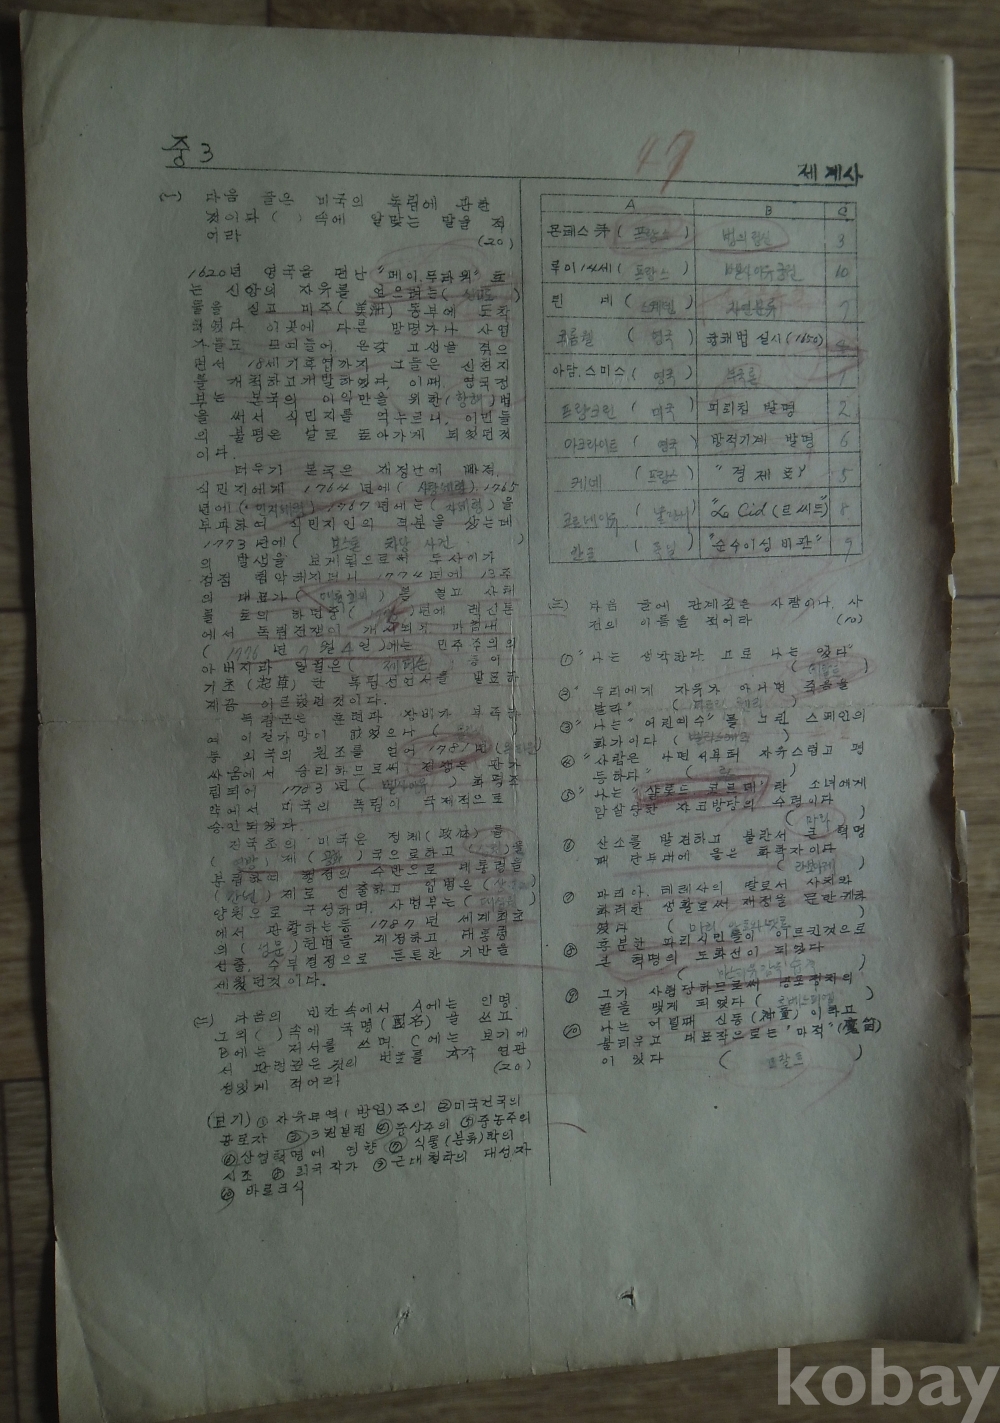 중 3
47
세계사
(一) 다음 글은 미국의 독립에 관한
것이다 ( ) 속에 알맞는 말을 적
어라 (20)
1620년 영국을 떠난 "메이.후라워" 호
는 신앙의 자유를 얻으려는 (
들을 싣고 미주(美洲) 동부에 도착
하였다 이곳에 다른 망명가나 사업
가들도 모여들어 온갖 고생을 겪으
면서 18세기 후엽까지 그들은 신천지
를 개척하고 개발하였다. 이때 영국정
부는 본국의 이익만을 위한 (항해) 법
을 써서 식민지를 억누르니, 이민들
의 불평은 날로 높아가게 되었던것
이다.
더우기 본국은 재정난에 빠져,
식민지에게 1764년에 ( 사탕세령 ) 1765
년에 (인지세령) 1767년에는 ( ) 을
부과하여 식민지인의 격분을 샀는데
1773년에 ( 보스톤 차당 사건 )
의 발생을 보게됨으로써 두사이가
점점 험악해지더니 1774년에 13주
의 대표가 ( ) 를 열고 사태
를 토의 하던중 ( ) 년에 렉신톤
에서 독립전쟁이 개시되어 마침내
( 1776년 7월 4일 ) 에는 민주주의의
아버지라 일컫은 ( 제퍼슨 ) 등이
기초(起草)한 독립선언서를 발표하
게끔 이르렀던것이다.
독립군은 훈련과 장비가 부족하
여 이길가망이 없었으나 (
등 외국의 원조를 얻어 1781년 (
싸움에서 승리하므로써 전쟁은 판가
림되어 1783년 ( 벨사이유 ) 화평조
약에서 미국의 독립이 국제적으로
승인되었다.
건국초의 미국은 정체(政体)를
( 연방 ) 제 ( 공화 ) 국으로하고 ( ) 를
분립하며 행정의 수반으로 대통령을
( 간선 ) 제로 선출하고 입법은 (
양원으로 구성하며, 사법부는 (
에서 관할하는등 1787년 세계최초
의 ( 성문 ) 헌법을 제정하고 대통령
선출, 수부결정으로 튼튼한 기반을
세웠던것이다.
(二) 다음의 빈칸 속에서 A에는 인명
그외 ( ) 속에 국명(國名)을 쓰고
B에는 저서를 쓰며, C에는 보기에
서 관련깊은 것의 번호를 각각 연관
성있게 적어라 (20)
(보기) ① 자유무역(방임)주의 ② 미국건국의
공로자 ③ 3권분립 ④ 중상주의 ⑤ 중농주의
⑥ 산업혁명에 영향 ⑦ 식물(분류)학의
시조 ⑧ 희극작가 ⑨ 근대철학의 대성자
⑩ 바로크식
A B C
몬테스큐 ( 프랑스 ) 법의정신 3
루이 14세 ( 프랑스 ) 10
린 네 ( 스웨덴 ) 자연분류 7
크롬웰 ( 영국 ) 항해법 실시 (1650) 4
아담.스미스 ( 영국 ) 국부론 1
프랑크린 ( 미국 ) 피뢰침 발명 2
아크라이트 ( 영국 ) 방적기계 발명 6
케네 ( 프랑스 ) "경제표" 5
코르네이유 ( ) "Le Cid (르씨트)" 8
칸트 ( 독일 ) "순수이성 비판" 9
(三) 다음 글에 관계깊은 사람이나, 사
건의 이름을 적어라 (10)
① "나는 생각한다. 고로 나는 있다"
( 데칼트 )
② "우리에게 자유가 아니면 죽음을
달라" ( 패트릭 헨리 )
③ 나는 "어린예수"를 그린 스페인의
화가이다 ( )
④ "사람은 나면서부터 자유스럽고 평
등하다" ( )
⑤ 나는 "샬로드 코르데" 란 소녀에게
암살당한 쟈코방당의 수령이다
( 마라 )
⑥ 산소를 발견하고 불란서 큰 혁명
때 단두대에 올은 화학자이다
( 라보아제 )
⑦ 마리아. 테레사의 딸로서 사치와
화려한 생활로써 재정을 문란케하
였다 ( 마리 앙뜨와넷트 )
⑧ 흥분한 파리시민들이 이르킨것으로
큰 혁명의 도화선이 되었다
( 바스티유감옥 습격 )
⑨ 그가 사형당하므로써 공포정치의
끝을 맺게 되었다 ( 로베스피엘 )
⑩ 나는 어릴때 신동(神童)이라고
불리우고 대표작으로는 "마적"(魔笛)
이 있다 ( 모찰트 )
kobay